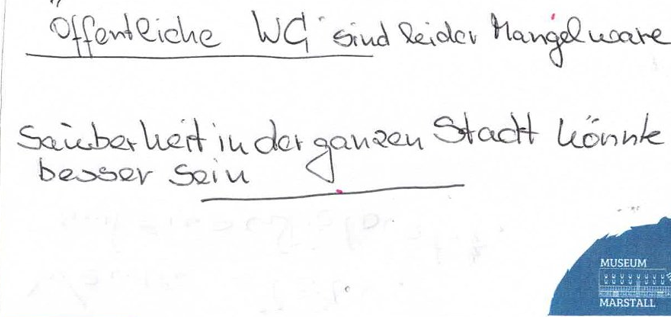 Öffentliche WG sind leider Mangelware
Sauberkeit in der ganzen Stadt könnte
besser sein
MUSEUM
MARSTALL